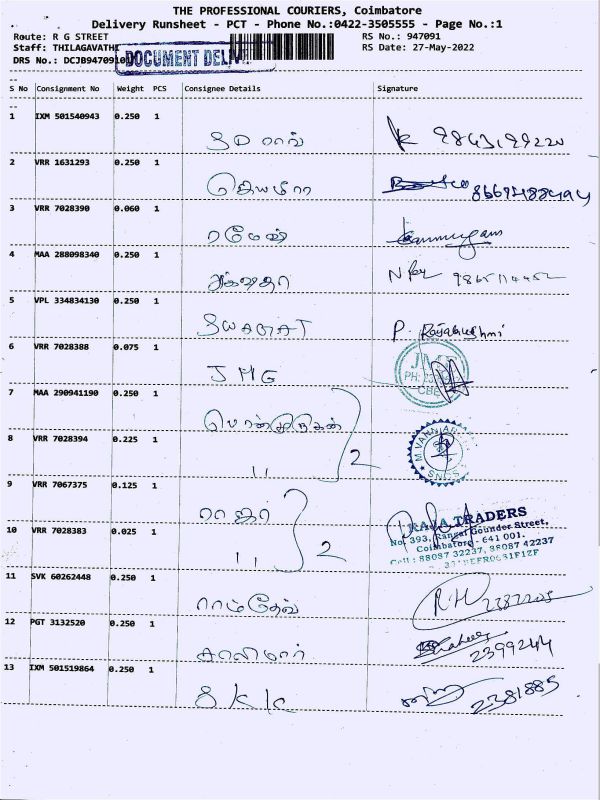 THE PROFESSIONAL COURIERS, Coimbatore
Delivery Runsheet - PCT - Phone No.:0422-3505555 - Page No.:1
Route: R G STREET RS No.: 947091
Staff: THILAGAVATHI RS Date: 27-May-2022
DRS No.: DCJB9470910 DOCUMENT DELIV
S No Consignment No Weight PCS Consignee Details Signature
1 IXM 501540943 0.250 1
2 VRR 1631293 0.250 1
3 VRR 7028390 0.060 1
ரமேஷ்
4 MAA 288098340 0.250 1
5 VPL 334834130 0.250 1
SWAGAT P. Rajalakshmi
6 VRR 7028388 0.075 1
JMG
7 MAA 290941190 0.250 1
பொன்முருகன்
8 VRR 7028394 0.225 1
11 2
9 VRR 7067375 0.125 1
ராஜா
RAJA TRADERS
No. 393, Rangai Gounder Street,
10 VRR 7028383 0.025 1
Coimbatore - 641 001.
11 2
Cell : 88087 32237, 88087 42237
11 SVK 60262448 0.250 1
ராம்தேவ்
12 PGT 3132520 0.250 1
சாலிமார் 2399244
13 IXM 501519864 0.250 1
S K K 2381885